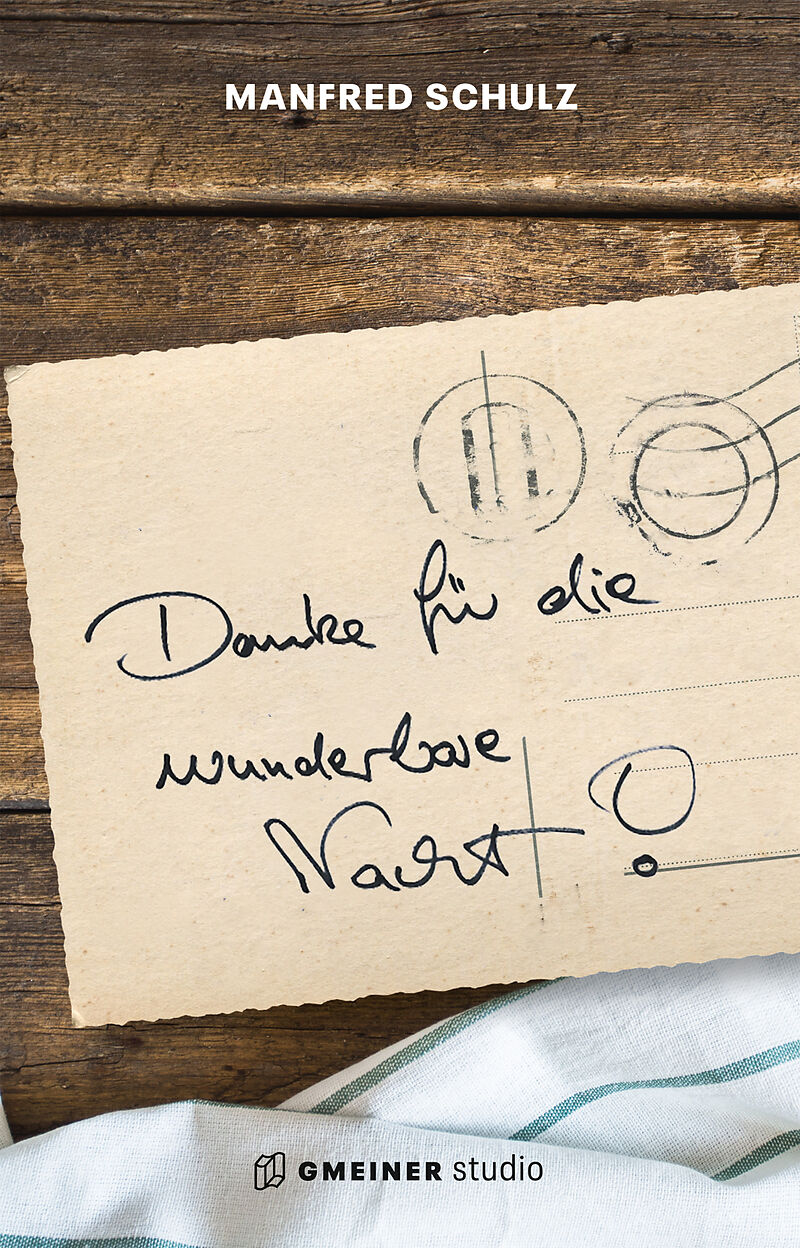 MANFRED SCHULZ
Danke für die
wunderbare
Nacht!
GMEINER studio